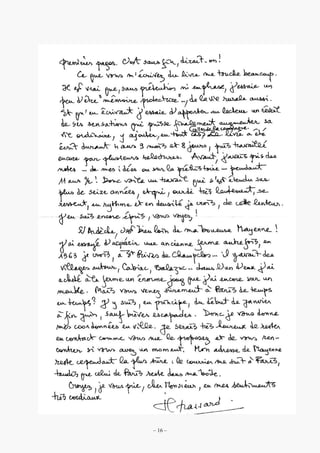 premières pages. C'est sans fin, dirait-on!
Ce que vous m'écrivez du livre me touche beaucoup.
Il est vrai que, sans prétention ni emphase, j'essaie un
peu d'être "mémoire protectrice"... de la vie rurale aussi.
Et qu'en écrivant j'essaie d'apporter au lecteur un éclat
de ses sensations qui puisse finalement augmenter sa
vie ordinaire, y ajouter, en tout cas celle de la campagne. Le livre a été
écrit durant 4 ans 3 mois et 8 jours, puis travaillé
encore par plusieurs relectures. Avant, j'avais pris des
notes - de mes idées au sur la préhistoire - pendant
11 ans ½! Donc voilà un travail qui s'est étendu sur
plus de seize années, et qui, ourdi très lentement, se
ressent, en rythme et en densité je crois, de cette lenteur.
J'en suis encore épris, vous voyez!
L'Ardèche, c'est bien loin de ma boueuse Mayenne!
J'ai essayé d'acquérir une ancienne ferme autrefois, en
1963 je crois, à St Privat de Champclos - il y avait des
villages autour, Labiac, Balazuc - dans l'un d'eux j'ai
acheté à la ferme un énorme joug que j'ai encore sur un
meuble. Mais vous venez sûrement à Paris de temps
en temps? J'y suis, en principe, du début de janvier
à fin juin, sauf brèves escapades. Donc je vous donne
mes coordonnées en ville. Je serais très heureux de rester
en contact comme vous me le proposez et de vous ren-
contrer si vous avez un moment. Mon adresse de Mayenne
reste cependant la plus sûre: le courrier me suit à Paris,
tandis que celui de Paris reste dans ma boîte.
Croyez, je vous prie, cher Monsieur, en mes sentiments
très cordiaux
- 16 -